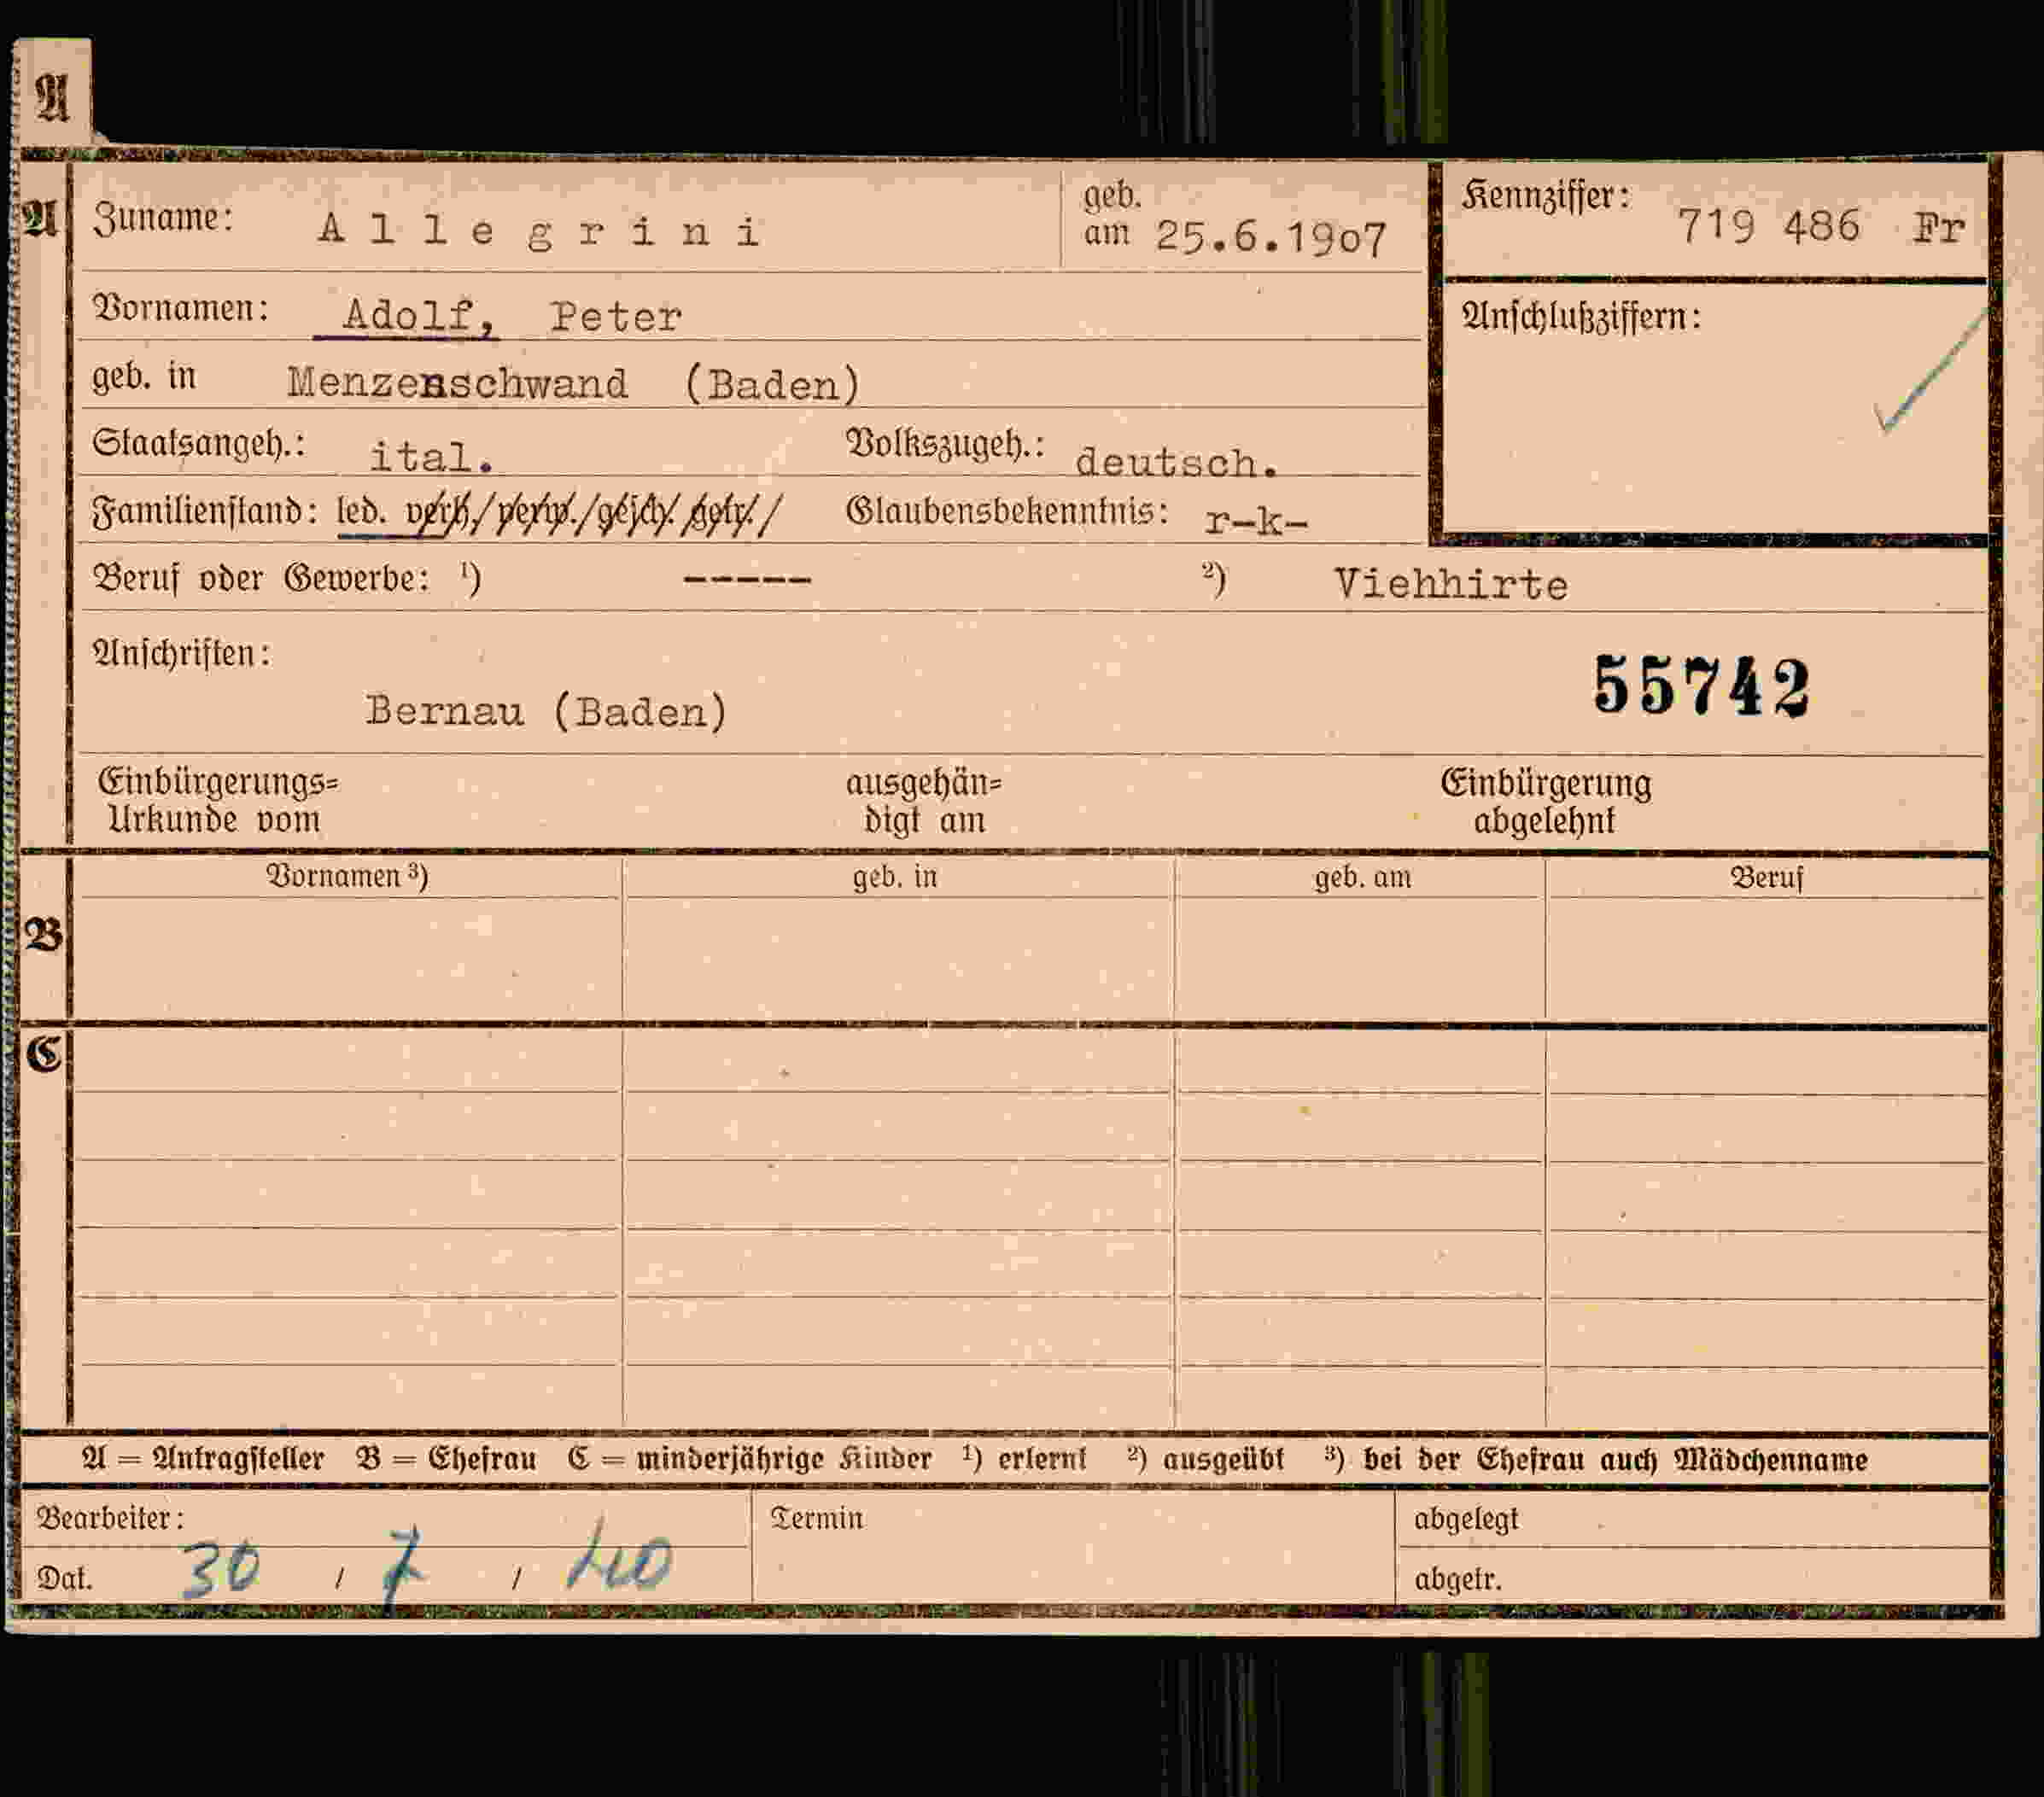 A
A Zuname: Allegrini geb. am 25.6.19o7 Kennziffer: 719 486 Fr
Vornamen: Adolf, Peter Anschlußziffern:
geb. in Menzenschwand (Baden)
Staatsangeh.: ital. Volkszugeh.: deutsch.
Familienstand: led. verh./verw./gesch./getr./ Glaubensbekenntnis: r-k-
Beruf oder Gewerbe: ¹) ----- ²) Viehhirte
Anschriften:
55742
Bernau (Baden)
Einbürgerungs= ausgehän= Einbürgerung
Urkunde vom digt am abgelehnt
Vornamen ³) geb. in geb. am Beruf
B
C
A = Antragsteller B = Ehefrau C = minderjährige Kinder ¹) erlernt ²) ausgeübt ³) bei der Ehefrau auch Mädchenname
Bearbeiter: Termin abgelegt
Dat. 30 / 7 / 40 abgetr.